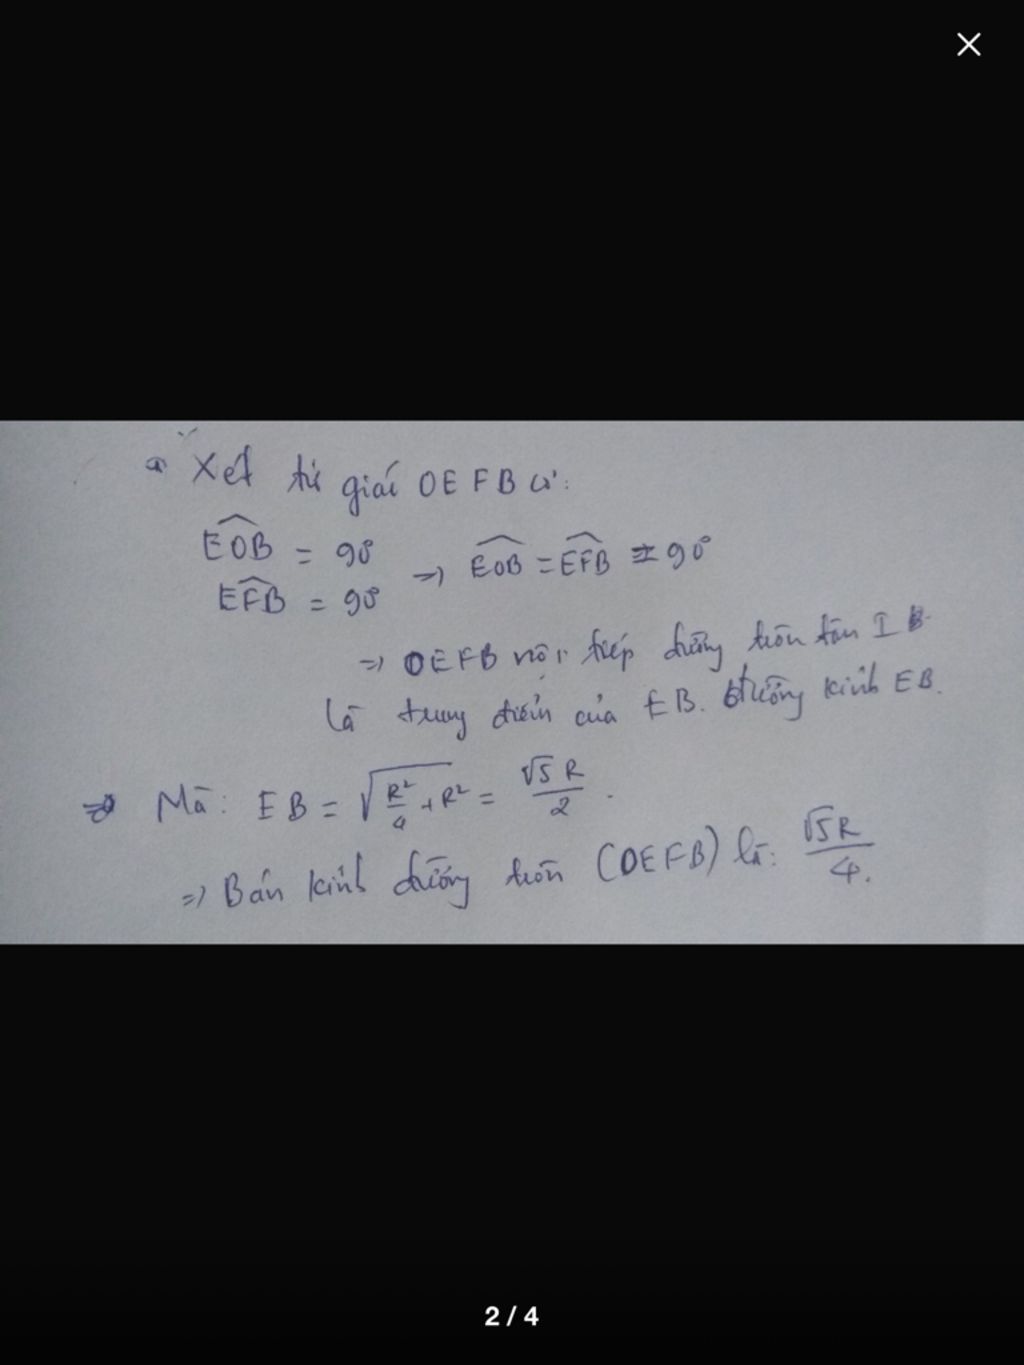 a Xét tứ giác OEFB có:
EOB = 90°
EFB = 90° => EOB = EFB = 90°
=> OEFB nội tiếp đường tròn tâm I
là trung điểm của EB. đường kính EB.
=> Mà: EB = √(R²/4 + R²) = √5 R/2.
=> Bán kính đường tròn (OEFB) là: √5R/4.
2 / 4